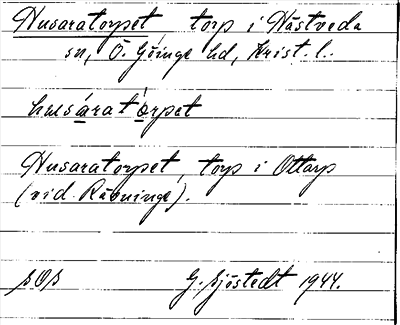 Husaratorpet torp i Hästveda
sn, Ö. Göinge hd, Krist. l.
husáratórpet
Husaratorpet, torp i Ottarp
(vid Rävninge).
SOS G. Sjöstedt 1944.